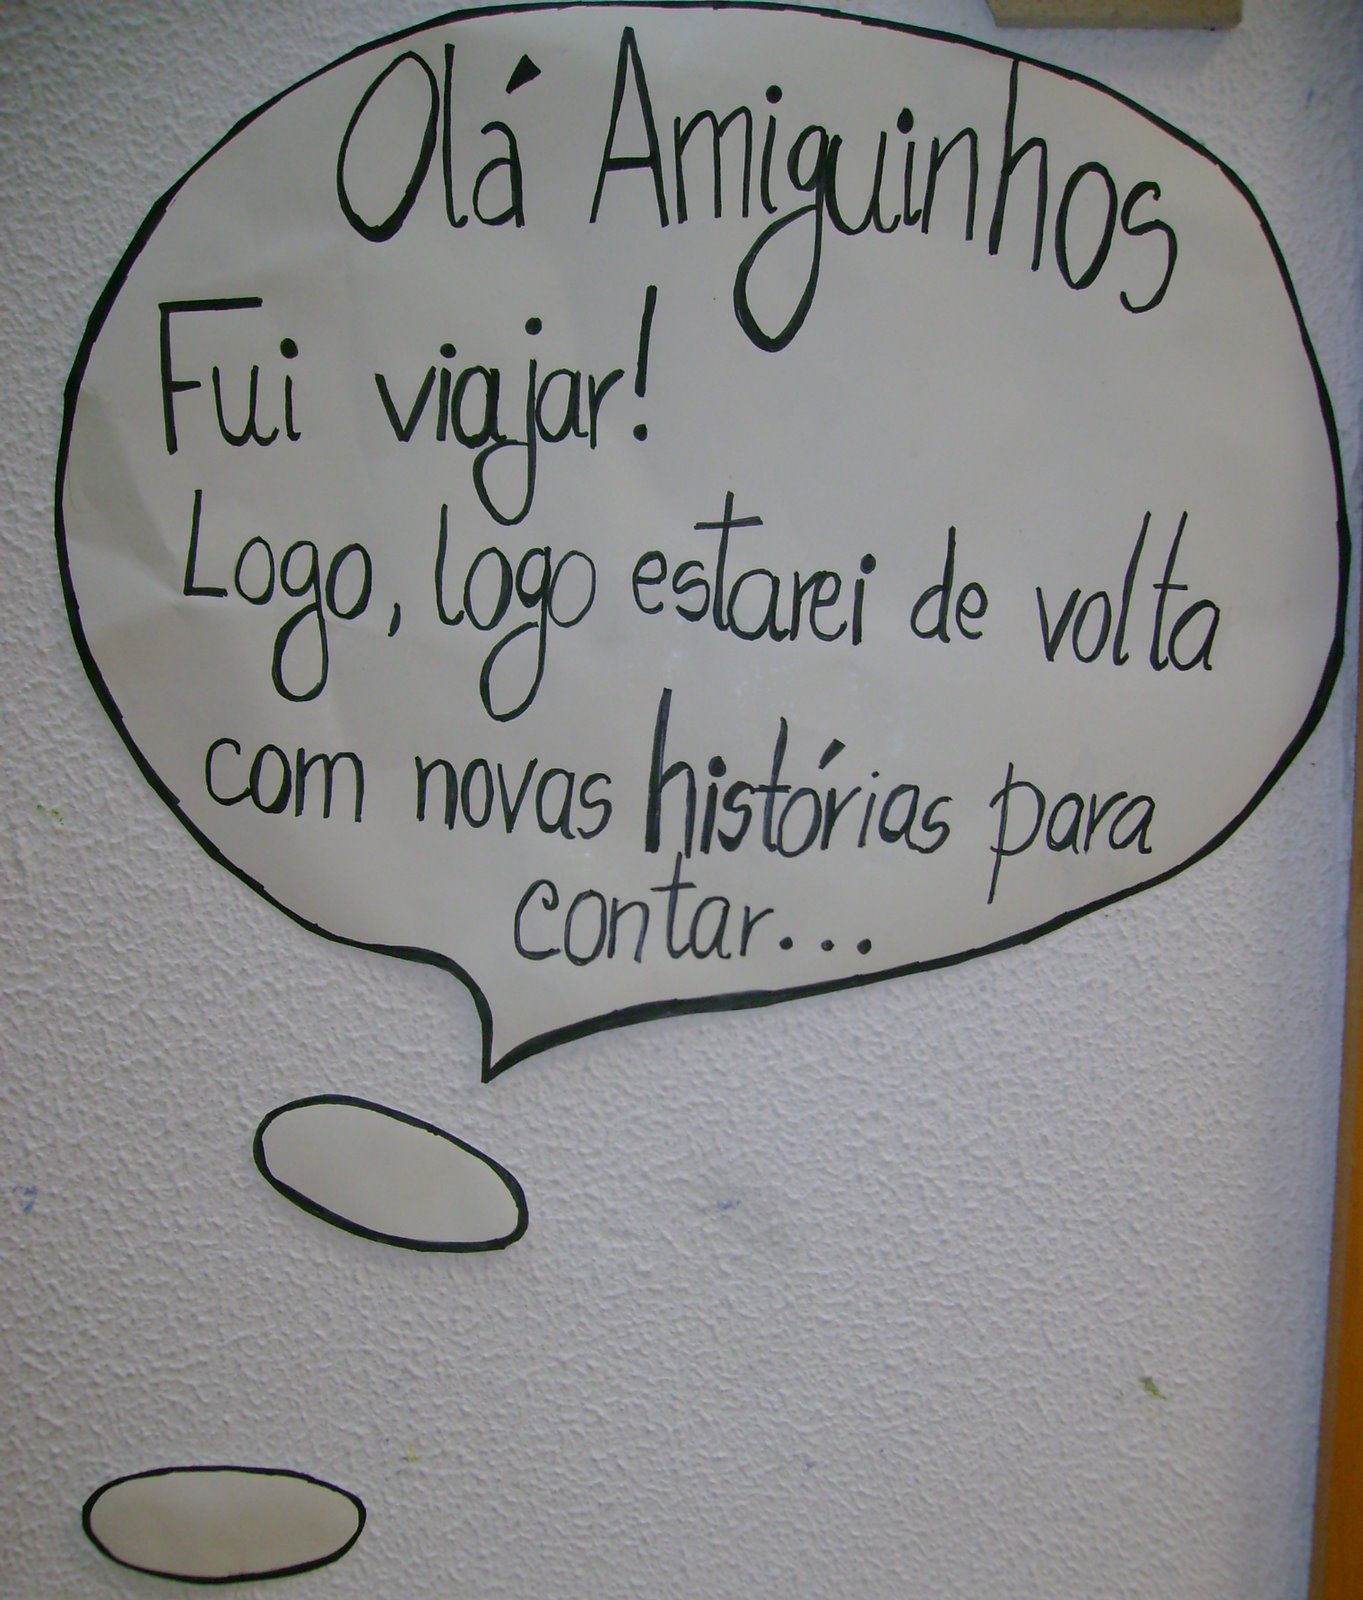 Olá Amiguinhos
Fui viajar!
Logo, logo estarei de volta
com novas histórias para
contar...